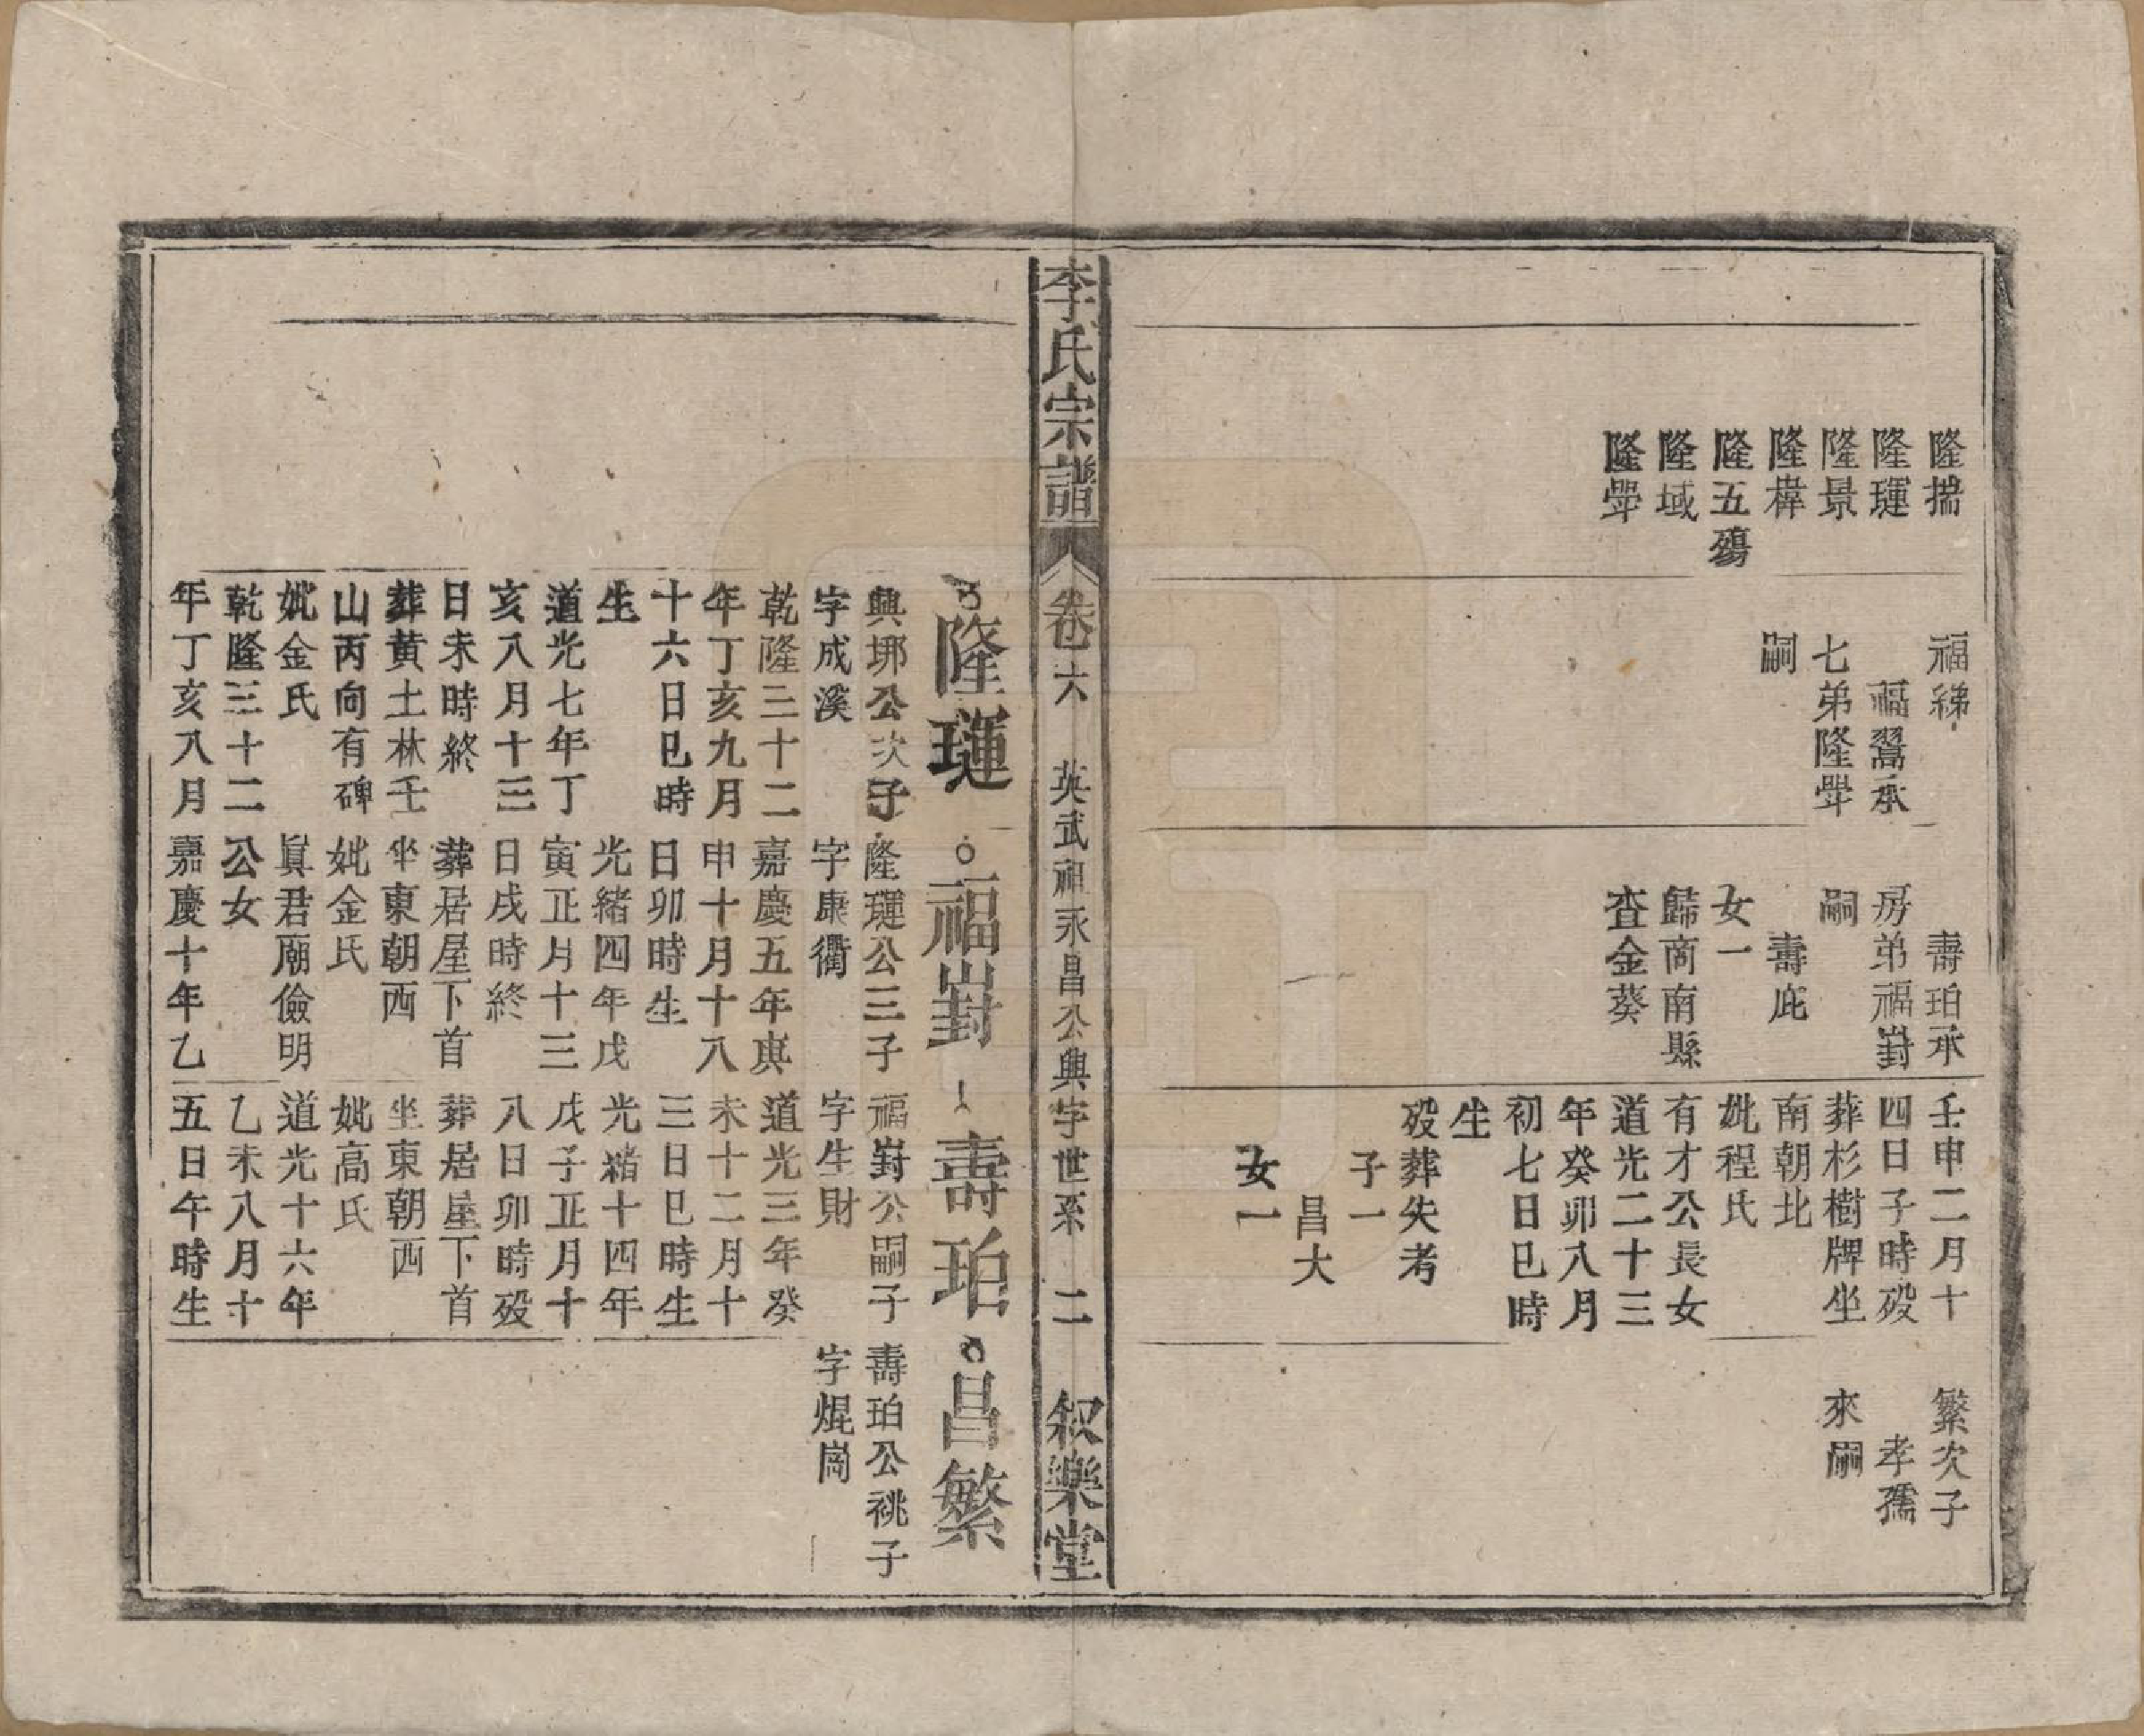 隆揣
隆璉
隆景
隆樟
隆五殤
隆域
隆犟
福綈
福翯承
七弟隆犟
嗣
壽珀承
房弟福嶎
嗣
壽庇
女一
歸商南縣
査金葵
壬申二月十
四日子時殁
葬杉樹牌坐
南朝北
妣程氏
有才公長女
道光二十三
年癸卯八月
初七日巳時
生
殁葬失考
子一
昌大
女一
繁次子
孝孺
來嗣
李氏宗譜
卷六
英武祖永昌公興字世系
二
叙樂堂
隆璉
興㙇公次子
字成溪
乾隆三十二
年丁亥九月
十六日巳時
生
道光七年丁
亥八月十三
日未時終
葬黃土林壬
山丙向有碑
妣金氏
乾隆三十二
年丁亥八月
福嶎
隆璉公三子
字康衢
嘉慶五年庚
申十月十八
日卯時生
光緒四年戊
寅正月十三
日戌時終
葬居屋下首
坐東朝西
妣金氏
眞君廟儉明
公女
嘉慶十年乙
壽珀
福嶎公嗣子
字生財
道光三年癸
未十二月十
三日巳時生
光緒十四年
戊子正月十
八日卯時殁
葬居屋下首
坐東朝西
妣高氏
道光十六年
乙未八月十
五日午時生
昌繁
壽珀公祧子
字焜崗